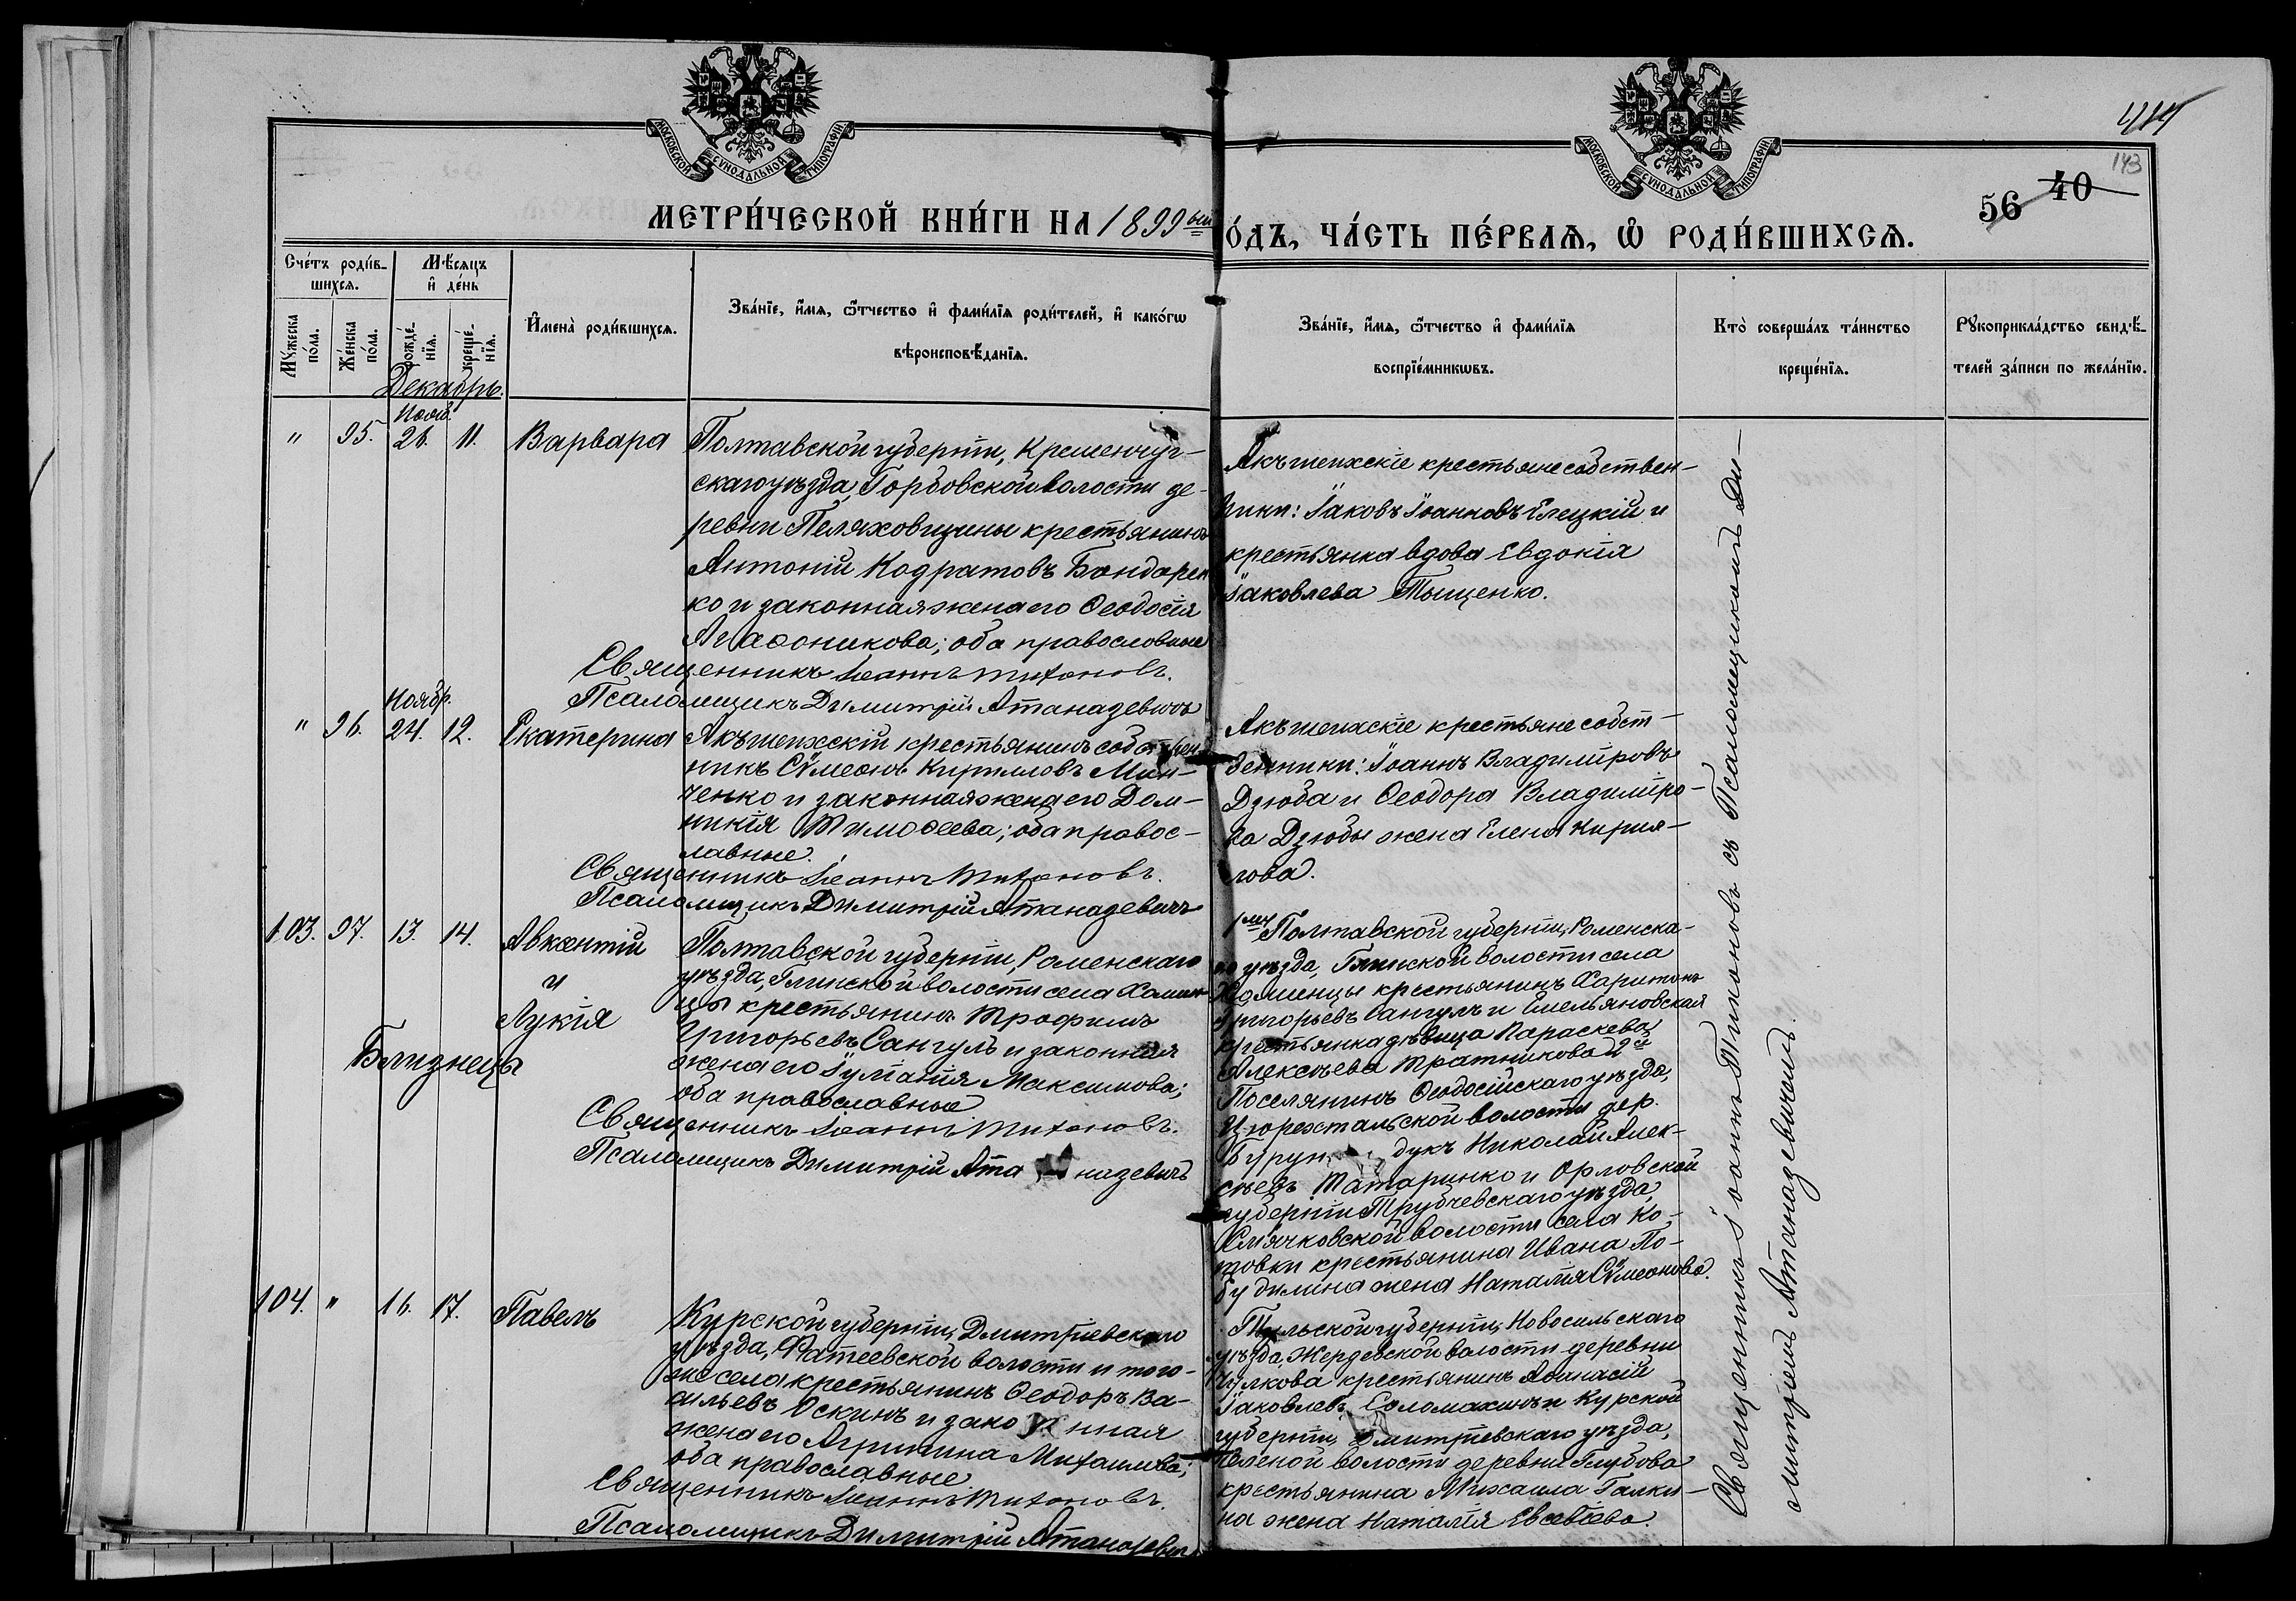 МОСКОВСКОЙ СѴНОДАЛЬНОЙ ТИПОГРАФІИ
МОСКОВСКОЙ СѴНОДАЛЬНОЙ ТИПОГРАФІИ
143
56 40
МЕТРИ́ЧЕСКОЙ КНИ́ГИ НА 1899ый
О́ДЪ, ЧА́СТЬ ПЕ́РВАѦ, Ѡ҆ РОДИ́ВШИХСѦ.
Сче́тъ роди́в-
шихсѧ.
Мꙋ́жеска по́ла.
Же́нска по́ла.
Мѣ́сѧцъ
и҆ де́нь
рожде́-нїѧ.
креще́-нїѧ.
И҆мена̀ роди́вшихсѧ.
Зва́нїе, и҆́мѧ, ѻ҆́тчество и҆ фами́лїѧ роди́телей, и҆ како́гѡ
вѣроисповѣ́данїѧ.
Зва́нїе, и҆́мѧ, ѻ҆́тчество и҆ фами́лїѧ
воспрїе́мникѡвъ.
Кто̀ соверша́лъ та́инство
креще́нїѧ.
Рꙋкоприкла́дство свидѣ́-
телей за́писи по жела́нїю.
Декабрь.
Нояб.
" 95. 26. 11. Варвара
Полтавской губерніи, Кременчуг-
скаго уѣзда, Горбовской волости де-
ревни Пеляховщины крестьянинъ
Антоній Кодратовъ Бондарен
ко и законная жена его Ѳеодосія
Агаѳоникова; оба православные
Священникъ Іоаннъ Тихоновъ.
Псаломщикъ Димитрій Атаназевичъ
Акъшеихскіе крестьяне собствен-
ники: Іаковъ Іоанновъ Елецкій и
крестьянка вдова Евдокія
Іаковлева Тыщенко.
Ноябр.
" 96. 24. 12. Екатерина
Акъшеихскій крестьянинъ собствен
никъ Сѵмеонъ Кирилловъ Мин-
ченко и законная жена его Дом-
никія Тимоѳеева; оба правос-
лавные.
Священникъ Іоаннъ Тихоновъ.
Псаломщикъ Димитрій Атаназевичъ
Акъшеихскіе крестьяне собст-
венники: Іоаннъ Владиміровъ
Дзюба и Ѳеодора Владиміро-
ва Дзюбы жена Елена Кирил-
лова.
103. 97. 13. 14. Авксентій
и
Лукія
Близнецы
Полтавской губерніи, Роменскаго
уѣзда, Глинской волости села Хомин
цы крестьянинъ Трофимъ
Григорьевъ Сангулъ и законная
жена его Іуліанія Максимова;
оба православные
Священникъ Іоаннъ Тихоновъ.
Псаломщикъ Димитрій Атаназевичъ
Полтавской губерніи, Роменска-
го уѣзда, Глинской волости села
Хоминцы крестьянинъ Харитонъ
Григорьевъ Сангулъ и Емельяновская
крестьянка дѣвица Параскева
Алексѣева Тратникова 2й
Поселянинъ Ѳеодосійскаго уѣзда,
Цюрехтальской волости дер.
Бурундукъ Николай Алек-
сѣевъ Татаринко и Орловской
губерніи Трубчевскаго уѣзда,
волости села Ко-
товки крестьянина Ивана По-
будилина жена Наталія Сѵмеонова.
104. " 16. 17. Павелъ
Курской губерніи, Дмитріевскаго
уѣзда, Фатеевской волости и того-
же села крестьянинъ Ѳеодоръ Ва-
сильевъ Оскинъ и законная
жена его Агрипина Михаилова;
оба православные
Священникъ Іоаннъ Тихоновъ.
Псаломщикъ Димитрій Атаназевич
Тульской губерніи, Новосильскаго
уѣзда, Жердевской волости деревни
Чулкова крестьянинъ Аѳанасій
Іаковлевъ Соломахинъ и Курской
губерніи, Дмитріевскаго уѣзда,
волости деревни Глубова
крестьянина Михаила Галки-
на жена Наталія Евсевіева.
Священникъ Іоаннъ Тихоновъ съ Псаломщикомъ Ди-
митріемъ Атаназевичемъ.